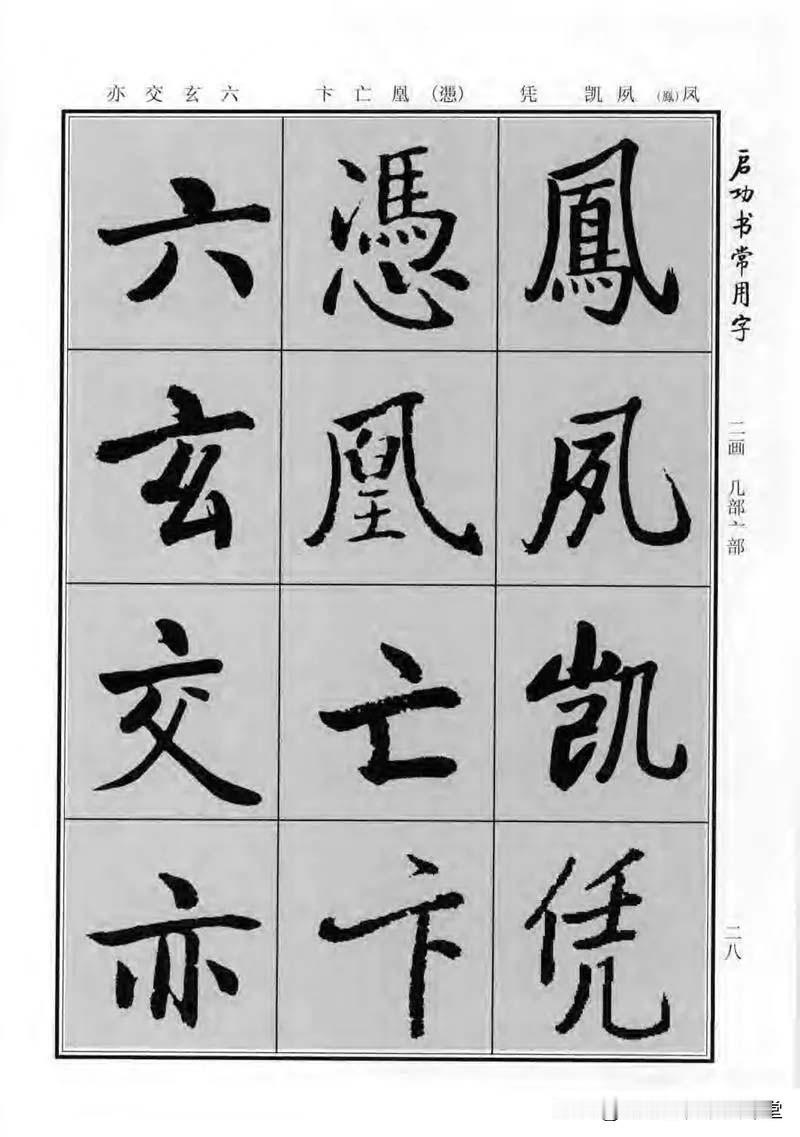 启功书常用字
二画 几部亠部
二八
凤(鳳) 夙 凯 凭 (憑) 凰 亡 卞 六 玄 交 亦
鳳
夙
凯
凭
憑
凰
亡
卞
六
玄
交
亦